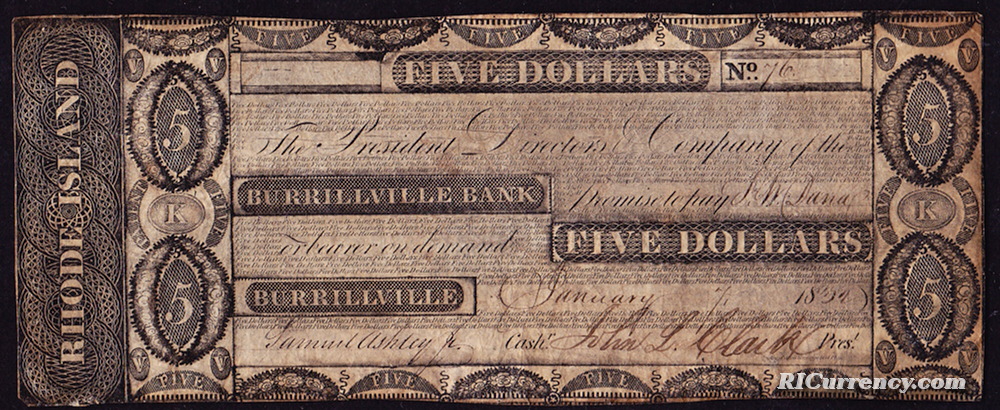 RHODE ISLAND
FIVE FIVE FIVE FIVE
V V V V
FIVE DOLLARS No. 76
5 5
The President Directors & Company of the
BURRILLVILLE BANK promise to pay
K K
or bearer on demand FIVE DOLLARS
BURRILLVILLE January 18
5 5
Samuel Ashley Jr. Cash.r John L. Clark Pres.t
V V V V
FIVE FIVE FIVE FIVE
RICurrency.com